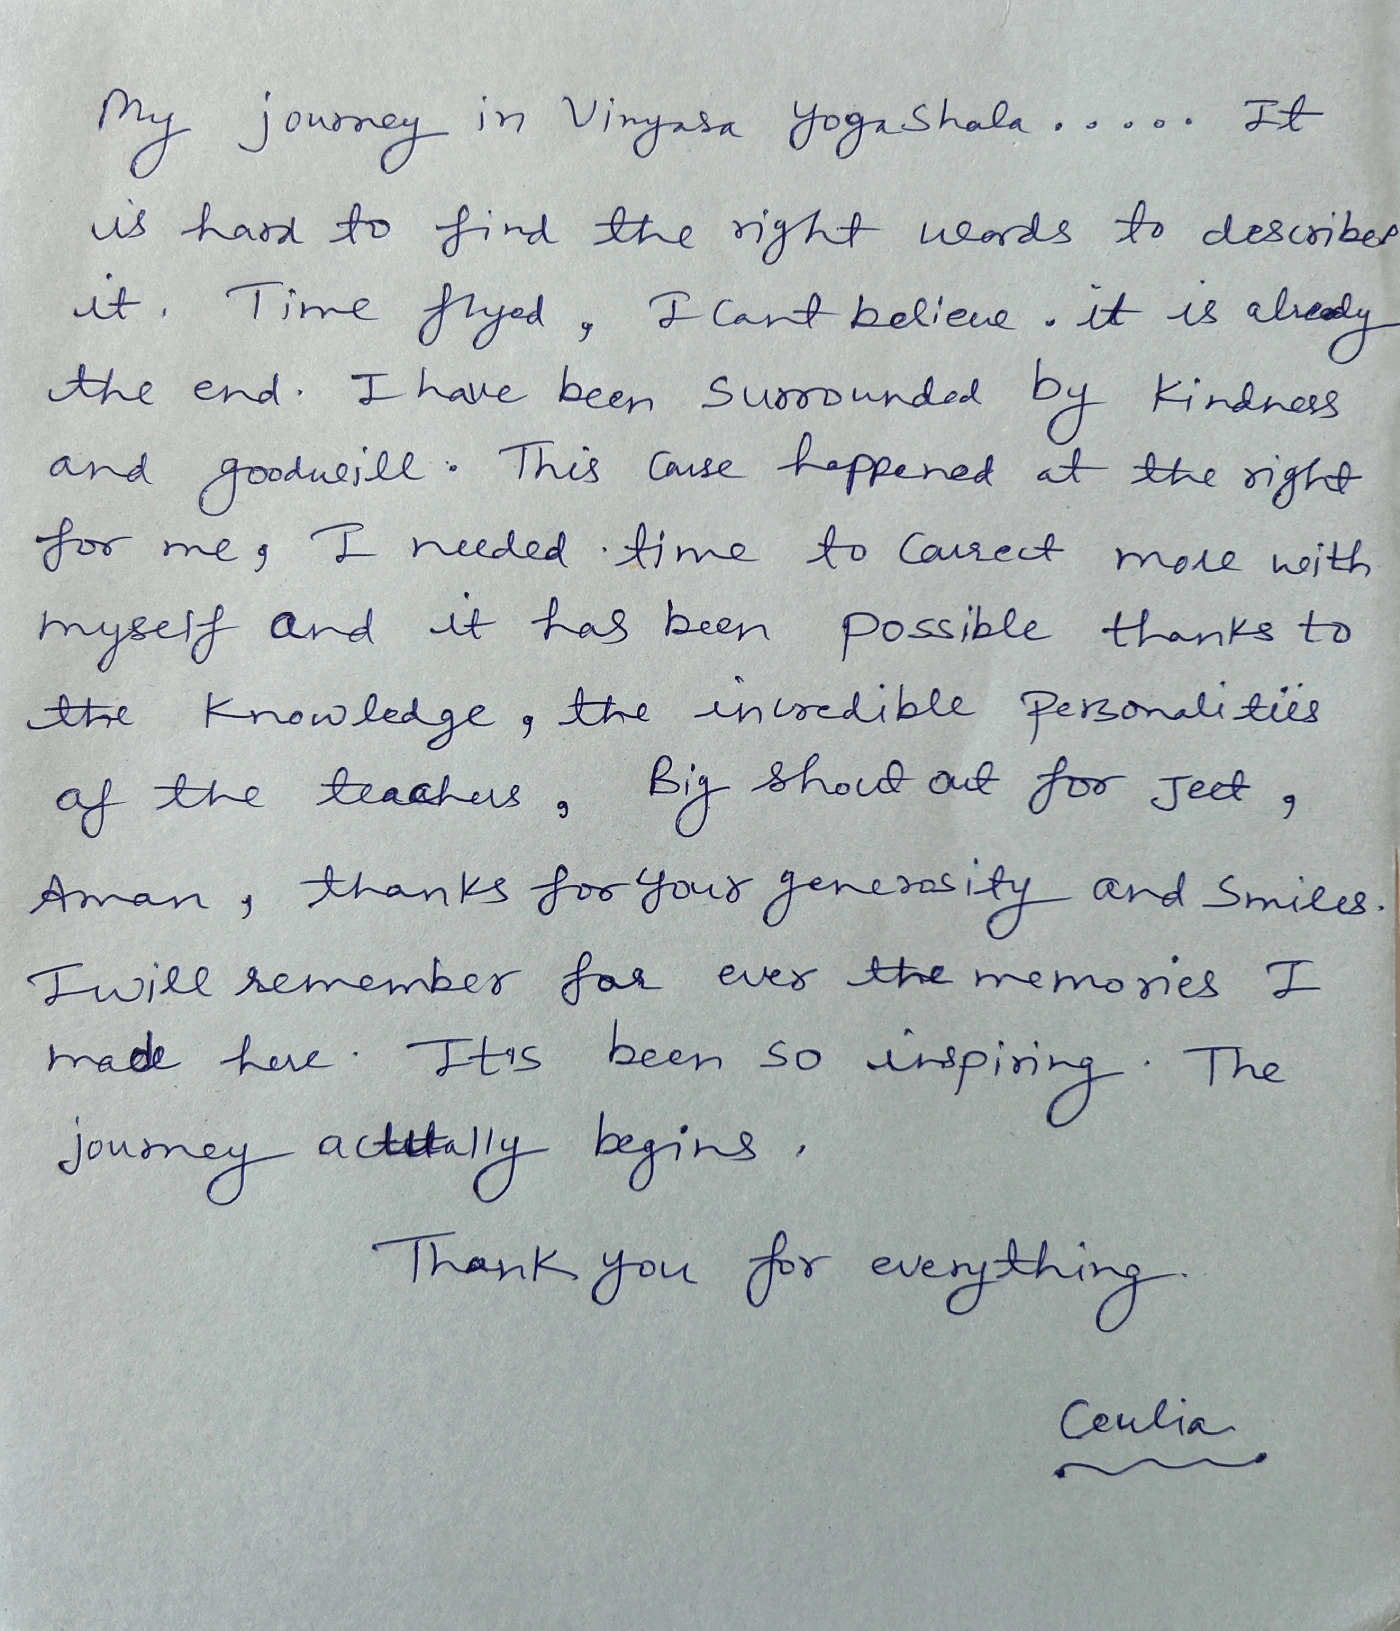 My journey in Vinyasa YogaShala..... It
is hard to find the right words to describe
it. Time flyed, I Cant believe. it is already
the end. I have been Surrounded by Kindness
and goodwill. This Cause happened at the right
for me, I needed time to Conect more with
myself and it has been possible thanks to
the Knowledge, the incredible Personalities
of the teachers, Big shout out for Jeet,
Aman, thanks for your generosity and Smiles.
I will remember for ever the memories I
made here. It's been so inspiring. The
journey actually begins.
Thank you for everything.